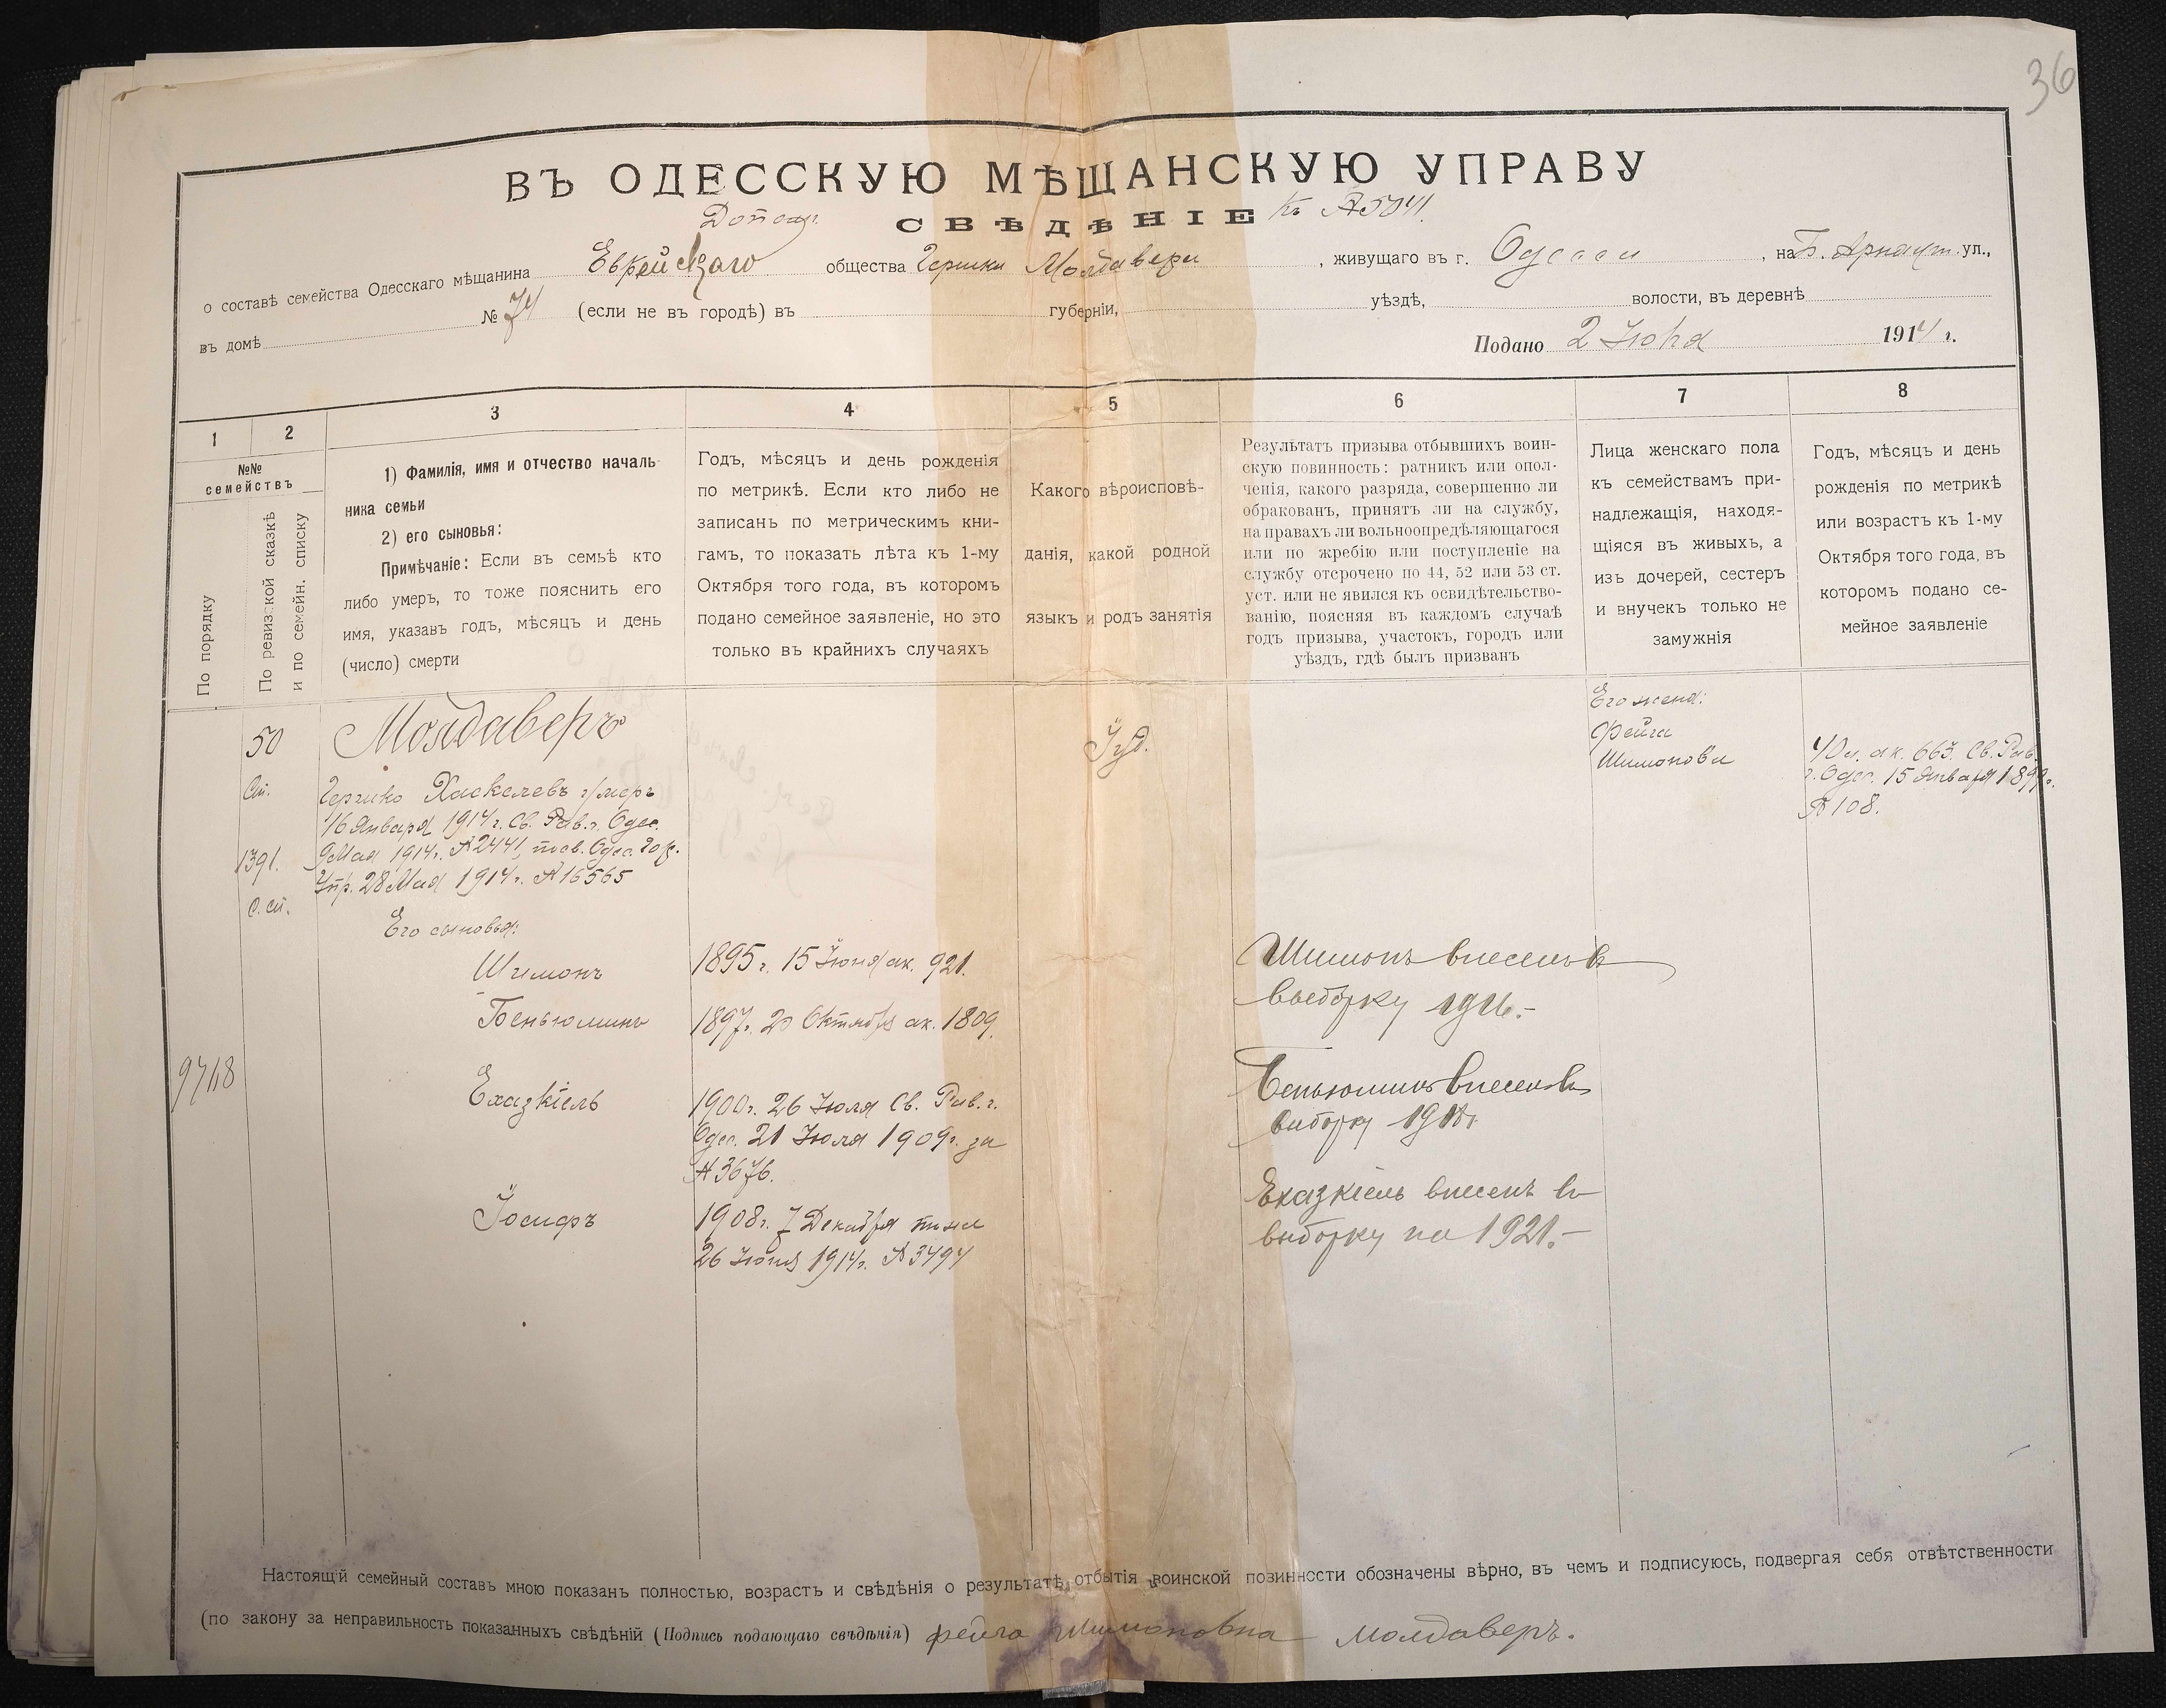 36
ВЪ ОДЕССКУЮ МѢЩАНСКУЮ УПРАВУ
СВѢДѢНІЕ къ №5041.
о составѣ семейства Одесскаго мѣщанина Еврейскаго общества Гершки Молдавера, живущаго въ г. Одессѣ, на Б. Арнаут. ул.,
въ домѣ № 74 (если не въ городѣ) въ губерніи, уѣздѣ, волости, въ деревнѣ
Подано 2 Іюля 1914 г.
1 2 3 4 5 6 7 8
№№
семействъ
По порядку
По ревизской сказкѣ
и по семейн. списку
1) Фамилія, имя и отчество началь-
ника семьи
2) его сыновья:
Примѣчаніе: Если въ семьѣ кто
либо умеръ, то тоже пояснить его
имя, указавъ годъ, мѣсяцъ и день
(число) смерти
Годъ, мѣсяцъ и день рожденія
по метрикѣ. Если кто либо не
записанъ по метрическимъ кни-
гамъ, то показать лѣта къ 1-му
Октября того года, въ которомъ
подано семейное заявленіе, но это
только въ крайнихъ случаяхъ
Какого вѣроисповѣ-
данія, какой родной
языкъ и родъ занятія
Результатъ призыва отбывшихъ воин-
скую повинность: ратникъ или опол-
ченія, какого разряда, совершенно ли
обракованъ, принятъ ли на службу,
на правахъ ли вольноопредѣляющагося
или по жребію или поступленіе на
службу отсрочено по 44, 52 или 53 ст.
уст. или не явился къ освидѣтельство-
ванію, поясняя въ каждомъ случаѣ
годъ призыва, участокъ, городъ или
уѣздъ, гдѣ былъ призванъ
Лица женскаго пола
къ семействамъ при-
надлежащія, находя-
щіяся въ живыхъ, а
изъ дочерей, сестеръ
и внучекъ только не
замужнія
Годъ, мѣсяцъ и день
рожденія по метрикѣ
или возрастъ къ 1-му
Октября того года, въ
которомъ подано се-
мейное заявленіе
50
1391.
С. сп.
9718
Молдаверъ
Гершко Хаскелевъ умеръ
16 Января 1914 г. Св. Рав. г. Одес.
9 Мая 1914 г. №2441, Одес. Гор.
Упр. 28 Мая 1914 г. №16565
Его сыновья:
Шимонъ
Беньюминъ
Ехазкіель
Іосифъ
1895 г. 15 Іюня ак. 921.
1897 г. 20 Октября ак. 1809.
1900 г. 26 Іюля Св. Рав. г.
Одес. 21 Іюля 1909 г. за
№3676.
1908 г. 7 Декабря
26 Іюня 1914 г. №3494
Іуд.
Шимонъ внесенъ въ
выборку 1916.-
Беньюминъ внесенъ въ
выборку 1918 г.
Ехазкіель внесенъ въ
выборку на 1921.-
Его жена:
Фейга
Шимонова
ак. 663. Св. Рав.
г. Одес. 15 Января 1899 г.
№108.
Настоящій семейный составъ мною показанъ полностью, возрастъ и свѣдѣнія о результатѣ отбытія воинской повинности обозначены вѣрно, въ чемъ и подписуюсь, подвергая себя отвѣтственности
(по закону за неправильность показанныхъ свѣдѣній (Подпись подающаго свѣдѣнія) фейга Шимоновна Молдаверъ.